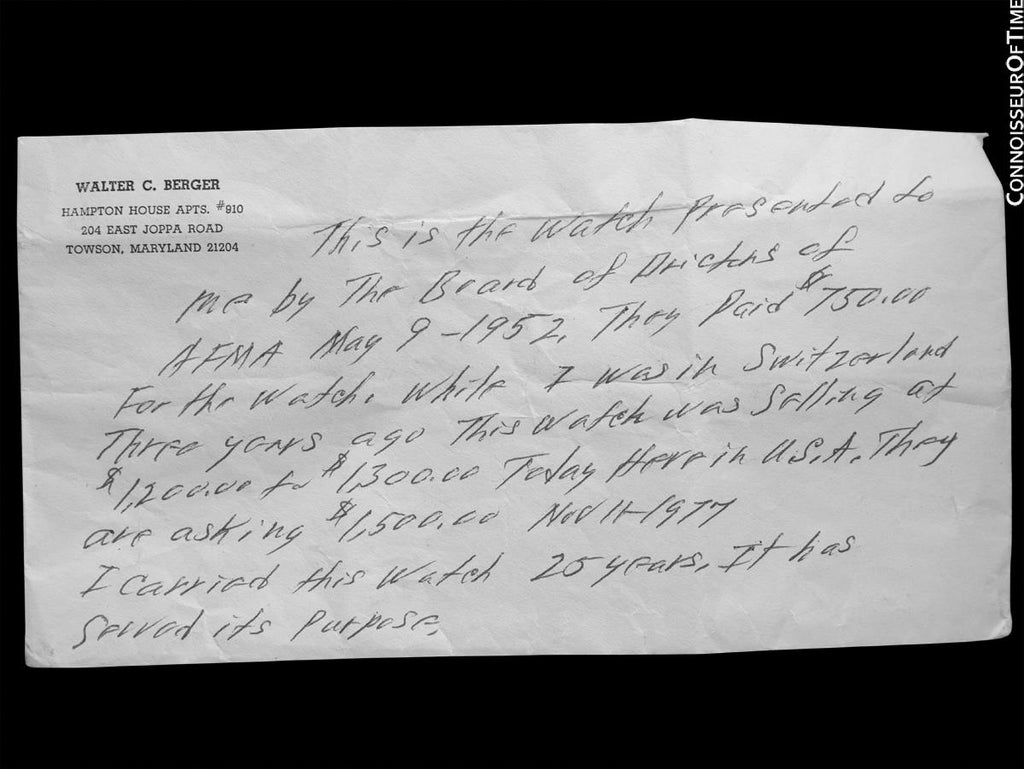 WALTER C. BERGER
HAMPTON HOUSE APTS. #910
204 EAST JOPPA ROAD
TOWSON, MARYLAND 21204
This is the Watch Presented to
me by The Board of Dricktrs of
AFMA May 9-1952, They Paid $750.00
For the Watch. While I was in Switzerland
Three years ago This Watch was Selling at
$1,200.00 to $1,300.00 Today Here in U.S.A. They
are asking $1,500.00 Nov 11-1977
I carried this Watch 25 years. It has
Served its Purpose.
CONNOISSEUROFTIME